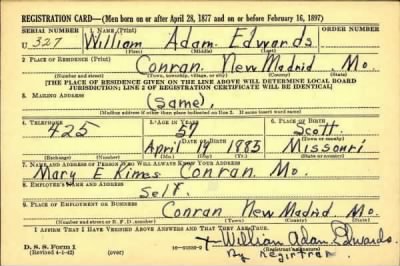 REGISTRATION CARD—(Men born on or after April 28, 1877 and on or before February 16, 1897)
SERIAL NUMBER 1. NAME (Print) ORDER NUMBER
U 327 William Adam Edwards
(First) (Middle) (Last)
2. PLACE OF RESIDENCE (Print)
Conran New Madrid Mo.
(Number and street) (Town, township, village, or city) (County) (State)
[THE PLACE OF RESIDENCE GIVEN ON THE LINE ABOVE WILL DETERMINE LOCAL BOARD
JURISDICTION; LINE 2 OF REGISTRATION CERTIFICATE WILL BE IDENTICAL]
3. MAILING ADDRESS
(Same).
[Mailing address if other than place indicated on line 2. If same insert word same]
4. TELEPHONE 5. AGE IN YEARS 6. PLACE OF BIRTH
425 57 Scott
DATE OF BIRTH (Town or county)
April 19 1885 Missouri
(Exchange) (Number) (Mo.) (Day) (Yr.) (State or country)
7. NAME AND ADDRESS OF PERSON WHO WILL ALWAYS KNOW YOUR ADDRESS
Mary E Kimes Conran Mo.
8. EMPLOYER'S NAME AND ADDRESS
Self.
9. PLACE OF EMPLOYMENT OR BUSINESS
Conran New Madrid Mo.
(Number and street or R. F. D. number) (Town) (County) (State)
I AFFIRM THAT I HAVE VERIFIED ABOVE ANSWERS AND THAT THEY ARE TRUE.
D. S. S. Form 1 William Adam Edwards
(Revised 4-1-42) (over) (Registrant's signature)
By Registrar